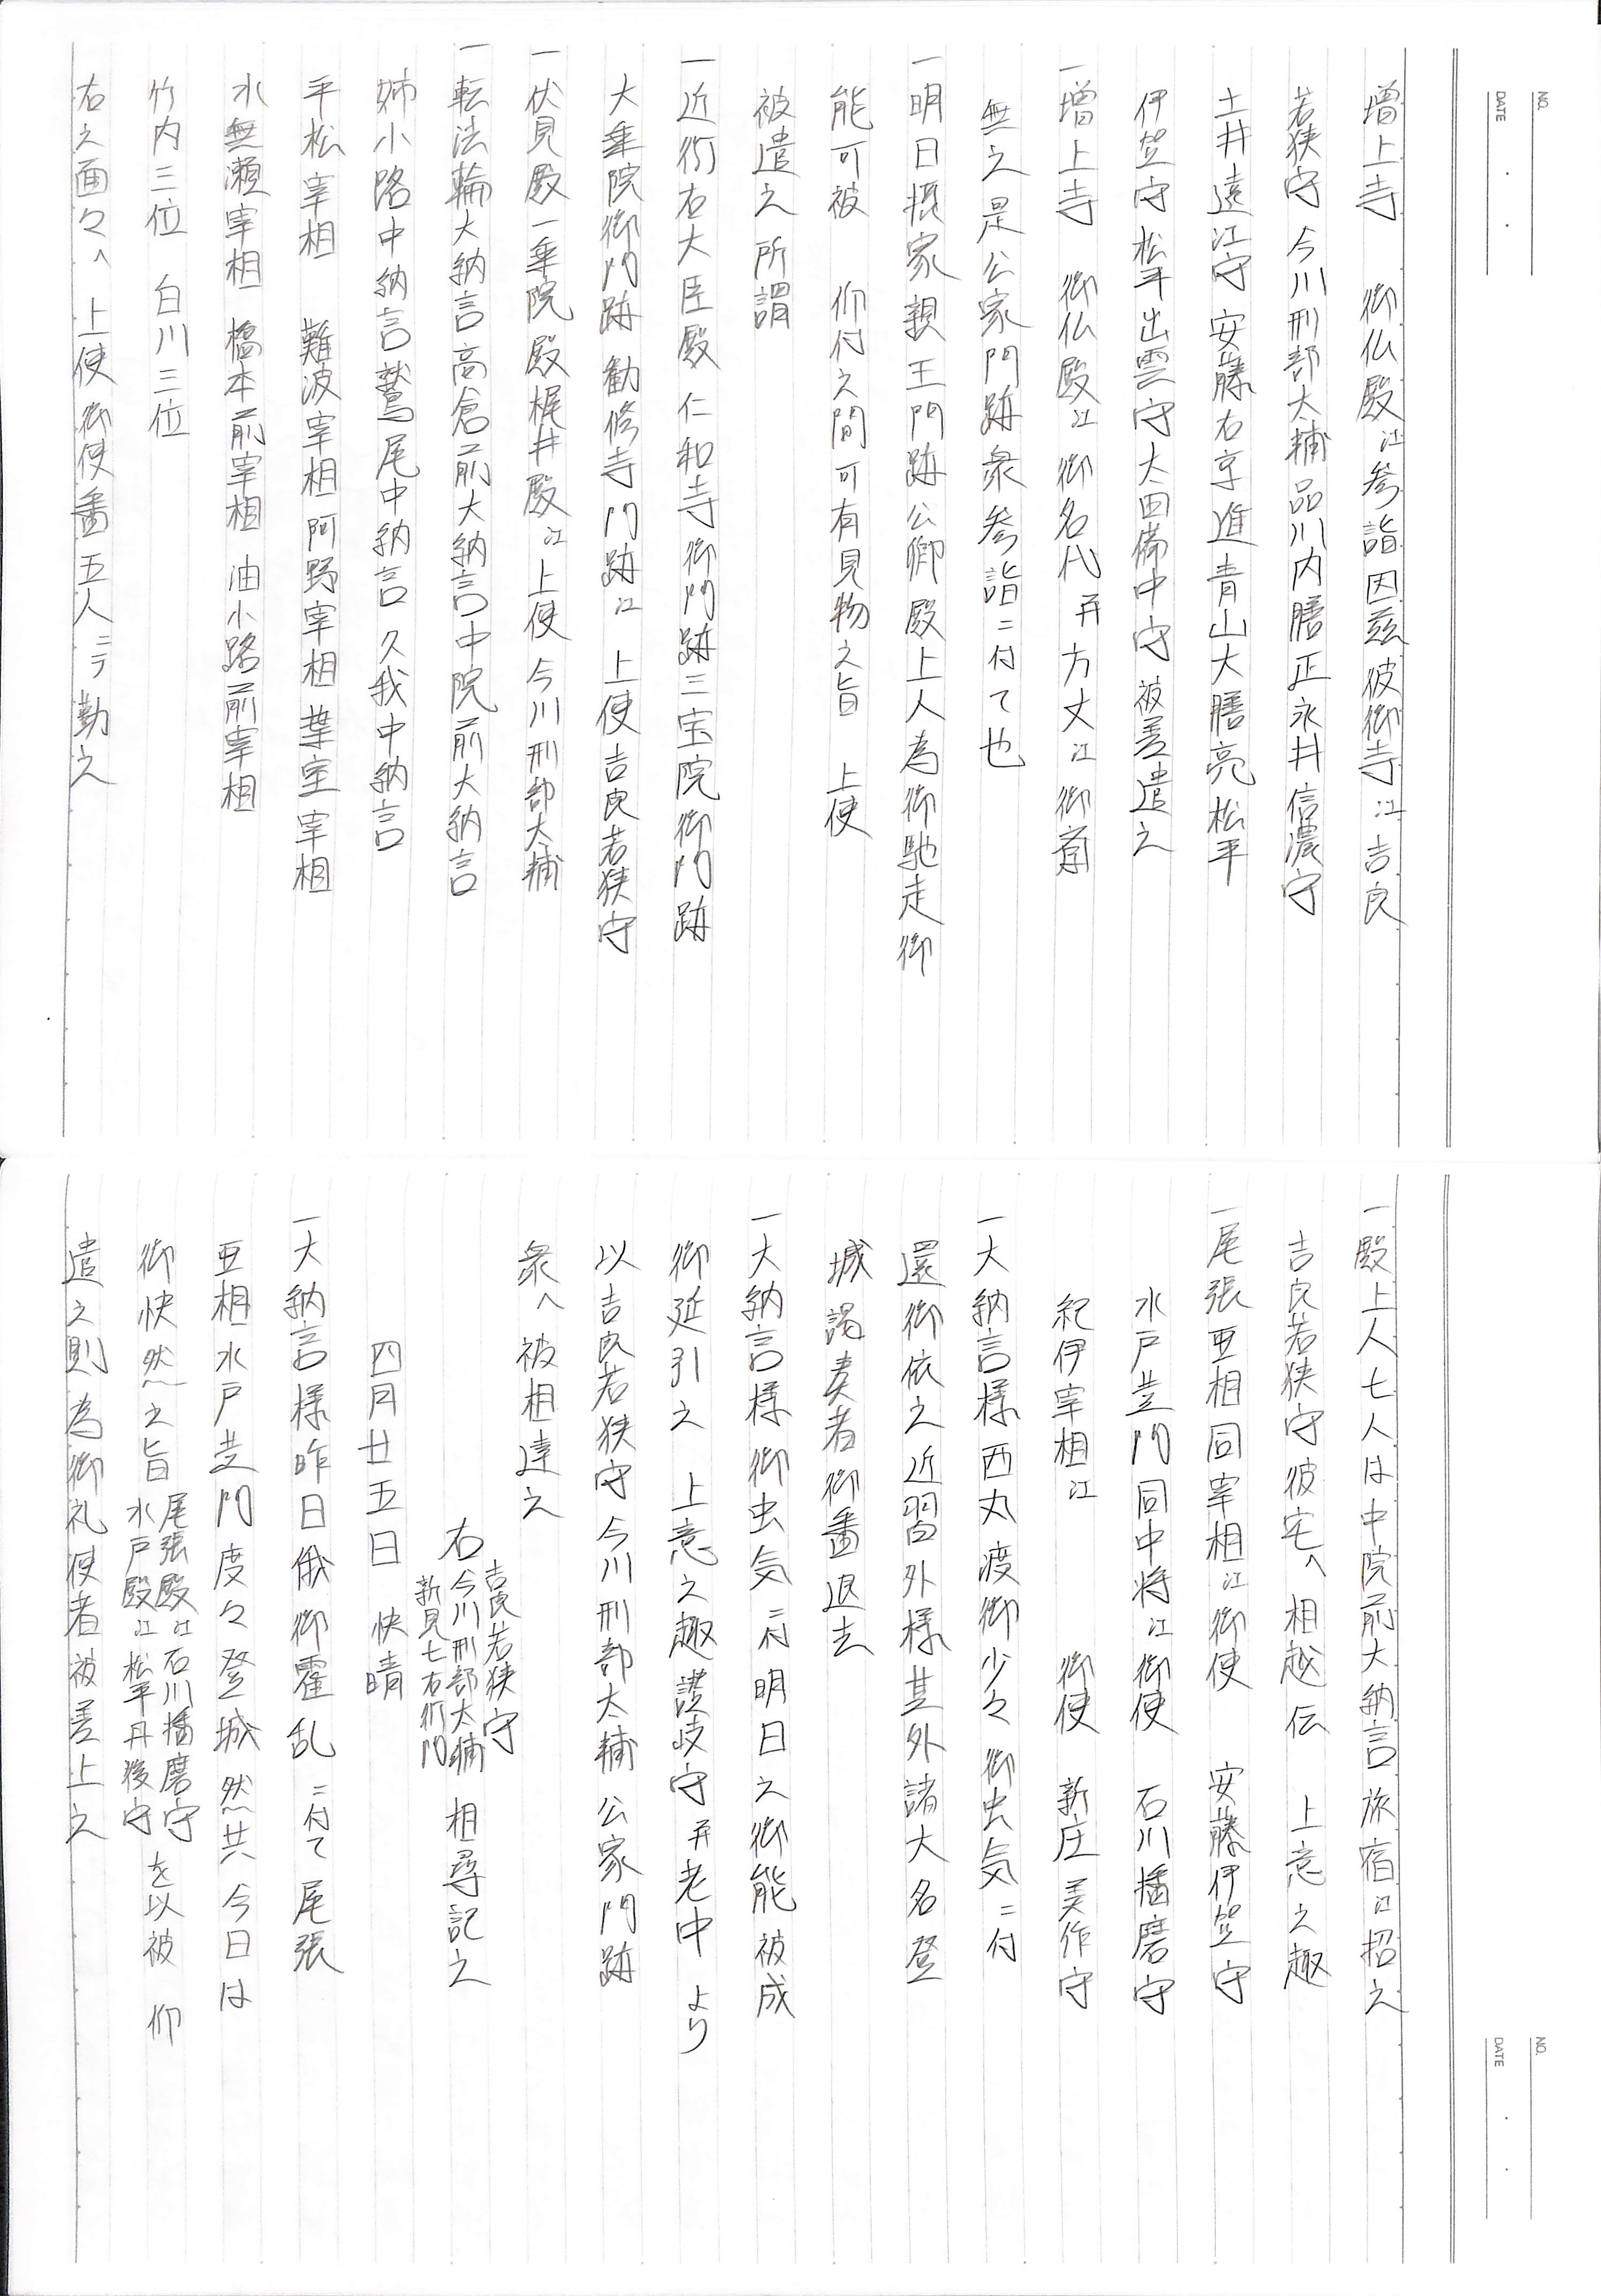 NO.
DATE
増上寺 御仏殿江参詣因茲彼御寺江吉良
若狭守今川刑部大輔品川内膳正永井信濃守
土井遠江守安藤右京進青山大膳亮松平
伊賀守松平出雲守太田備中守被差遣之
一増上寺 御仏殿江御名代并方丈江御斎
無之是公家門跡衆参詣ニ付て也
一明日摂家親王門跡公卿殿上人為御馳走御
能可被 仰付之間可有見物之旨 上使
被遣之所謂
一近衛右大臣殿仁和寺御門跡三宝院御門跡
大乗院御門跡勧修寺門跡江 上使吉良若狭守
一伏見殿一乗院殿梶井殿江上使今川刑部太輔
一転法輪大納言高倉前大納言中院前大納言
姉小路中納言鷲尾中納言久我中納言
平松宰相 難波宰相阿野宰相葉室宰相
水無瀬宰相 橋本前宰相 油小路前宰相
竹内三位 白川三位
右之面々へ 上使御使番五人ニテ勤之
NO.
DATE
一殿上人七人は中院前大納言旅宿江招之
吉良若狭守彼宅へ相越伝 上意之趣
一尾張亜相同宰相江御使 安藤伊賀守
水戸黄門同中将江御使 石川播磨守
紀伊宰相江 御使 新庄美作守
一大納言様西丸渡御少々御虫気ニ付
還御依之近習外様其外諸大名登
城謁奏者御番退去
一大納言様御虫気ニ付明日之御能被成
御延引之 上意之趣讃岐守并老中より
以吉良若狭守今川刑部太輔公家門跡
衆へ被相達之
右 吉良若狭守 今川刑部太輔 新見七右衛門 相尋記之
四月廿五日 快晴
一大納言様昨日俄御霍乱ニ付て尾張
亜相水戸黄門度々登城然共今日は
御快然之旨 尾張殿江石川播磨守 水戸殿江松平丹後守 を以被 仰
遣之則為御礼使者被差上之